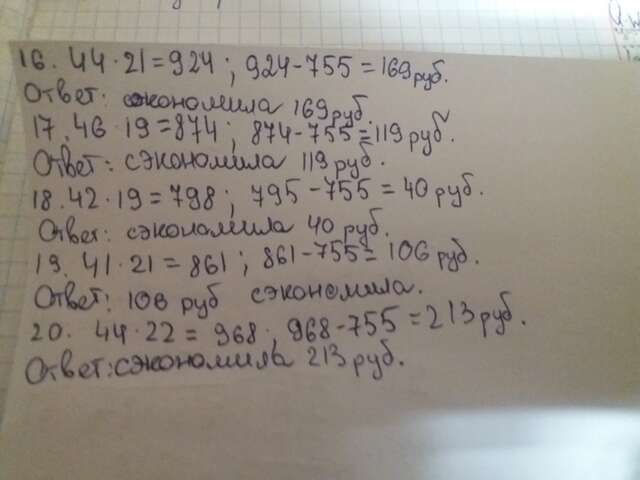 16. 44·21=924; 924-755=169руб.
Ответ: сэкономила 169руб.
17. 46·19=874; 874-755=119руб.
Ответ: сэкономила 119 руб.
18. 42·19=798; 795-755=40руб.
Ответ: сэкономила 40 руб.
19. 41·21=861; 861-755=106руб.
Ответ: 106 руб сэкономила.
20. 44·22=968; 968-755=213руб.
Ответ: сэкономила 213 руб.